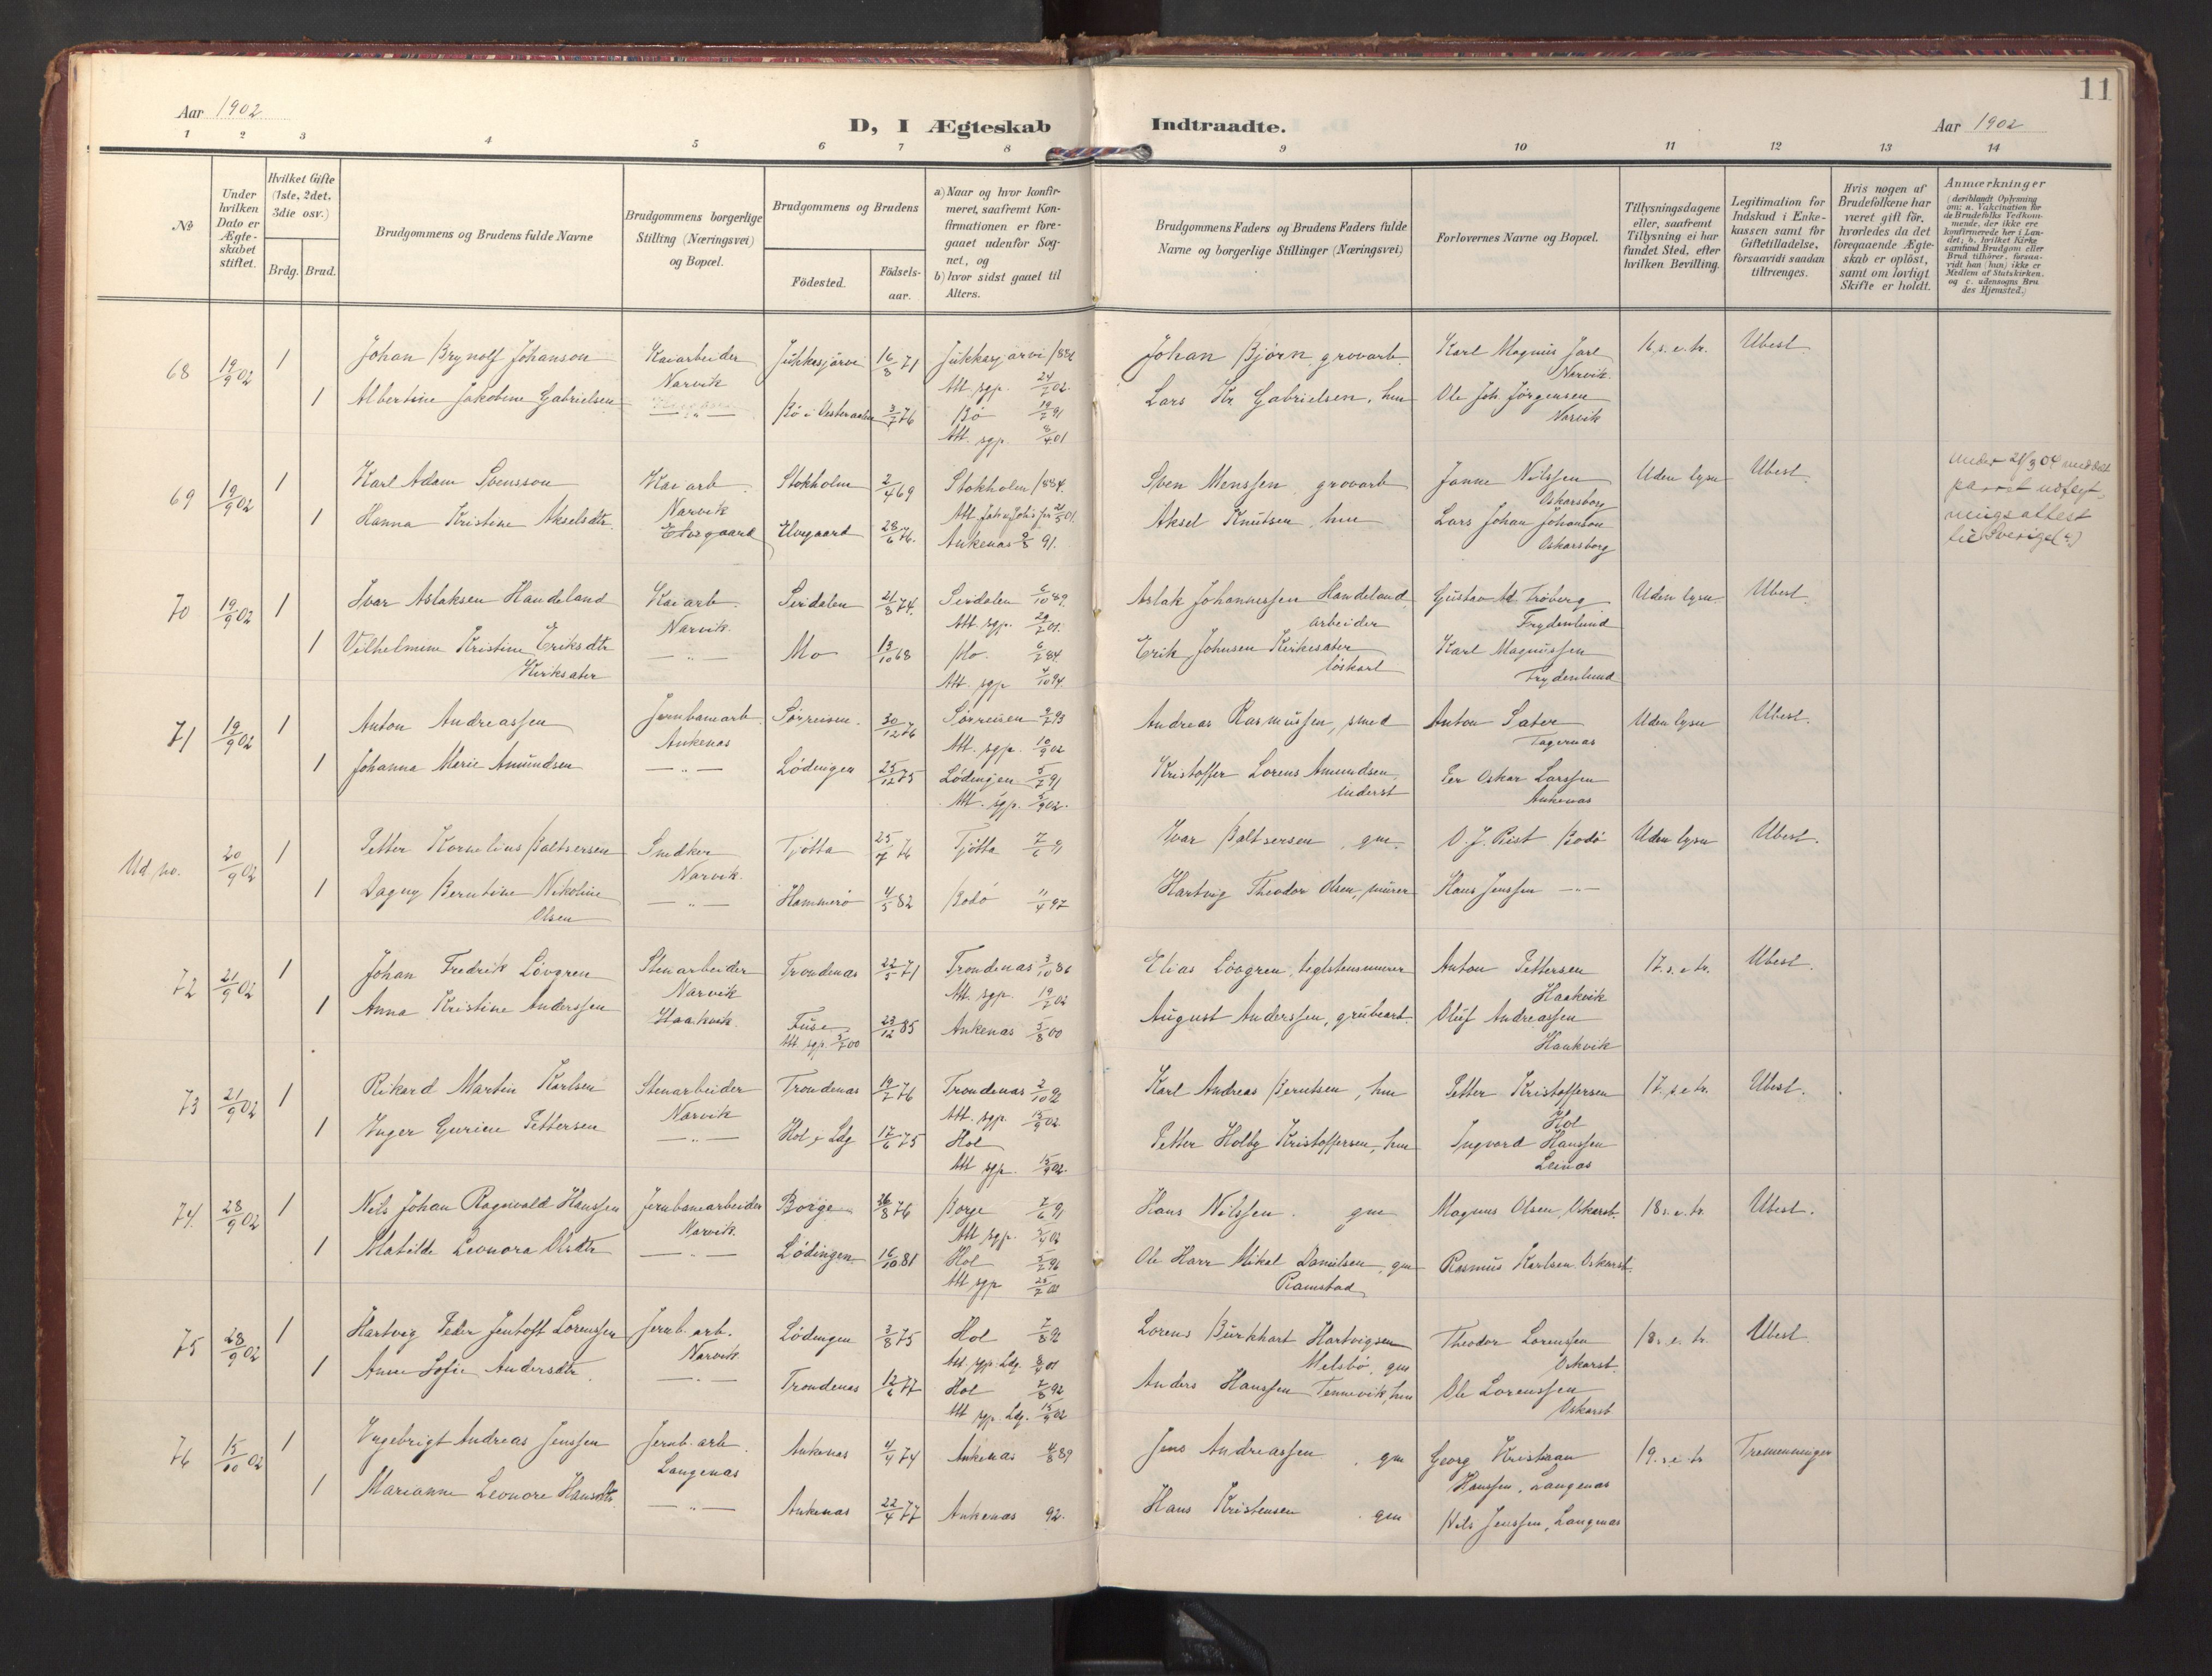 11
Aar 1902
D, I Ægteskab Indtraadte.
Aar 1902
1 2 3 4 5 6 7 8 9 10 11 12 13 14
No
Under hvilken Dato er Ægteskabet stiftet.
Hvilket Gifte (1ste, 2det, 3die osv.)
Brdg. Brud.
Brudgommens og Brudens fulde Navne
Brudgommens borgerlige Stilling (Næringsvei) og Bopæl.
Brudgommens og Brudens
Födested.
Födselsaar.
a) Naar og hvor konfirmeret, saafremt Konfirmationen er foregaaet udenfor Sognet, og
b) hvor sidst gaaet til Alters.
Brudgommens Faders og Brudens Faders fulde Navne og borgerlige Stillinger (Næringsvei)
Forlovernes Navne og Bopæl.
Tillysningsdagene eller, saafremt Tillysning ei har fundet Sted, efter hvilken Bevilling.
Legitimation for Indskud i Enkekassen samt for Giftetilladelse, forsaavidt saadan tiltrænges.
Hvis nogen af Brudefolkene har været gift før, hvorledes da det foregaaende Ægteskab er oplöst, samt om lovligt Skifte er holdt.
Anmærkninger (deriblandt Oplysning om: a. Vakcination for de Brudefolks Vedkommende, der ikke ere konfirmerede her i Landet; b. hvilket Kirke samfund Brudgom eller Brud tilhörer, forsaavidt han (hun) ikke er Medlem af Statskirken, og c. udensogns Brudes Hjemsted.)
68 19/9 02 1 Johan Brynolf Johanson Kaiarbeider Jukkasjärvi 16/8 71 Jukkasjärvi 188 Johan Björn, grovarb. Karl Magnus Jarl 16 s. e. tr. Ubest.
Narvik Att. sgp. 24/ 02. Narvik.
1 Albertine Jakobine Gabrielsen Bö i Vesteraalen 3/7 76 Bö 19/7 91 Lars Kr Gabrielsen, hm Ole Joh. Jörgensen
Att. sgp. 8/4 01 Narvik
69 19/9 02 1 Karl Adam Svensson Kaiarb. Stokholm 2/4 69 Stokholm 1884. Sven Menssen, grovarb Janne Nilssen Uden lysn Ubest.
Narvik Oskarsborg
1 Hanna Kristine Akselsdtr. Elvegaard Elvegaard 28/6 76. Ankenas 91. Aksel Knutsen, hm Lars Johan Johanson
Oskarsborg
under 21/3 04 meddelt
parret udflyt-
ningsattest
til Sverige
70 19/9 02 1 Ivar Aslaksen Handeland Kaiarb. Sirdalen 21/8 74. Sirdalen 6/10 89. Aslak Johannessen Handeland Gustav M Fröberg Uden lysn. Ubest.
Narvik. Att. sgp. 29/ 01. arbeider Frydenlund
1 Vilhelmine Kristine Eriksdtr Mo 13/10 68 Mo. 84. Erik Johnsen Kirkesæter Karl Magnussen
Kirksæter Att. sgp 4/10 94. löskarl Frydenlund
71 19/9 02 1 Anton Andreassen Jernbanearb. Sörreisen 30/12 76 Sörreisen 9/7 93 Andreas Rasmussen, smed Anton Sæter Uden lysn Ubest.
Ankenas Att. sgp. 10/9 02 Fagernas
1 Johanna Marie Amundsen Lödingen 25/12 75 Lödingen 5/7 91 Kristoffer Lorens Amundsen, Per Oskar Larssen
Att. sgp. 5/9 02. inderst Ankenas
Ud no. 20/9 02 1 Petter Kornelius Baltsersen Snedker Tjötta 25/7 76 Tjötta 7/6 91 Ivar Baltsersen, gm. O. J. Rist Bodö Uden lysn Ubest.
Narvik.
1 Dagny Berntine Nikoline Hammerö 4/5 82 Bodö 11/4 97 Hartvig Theodor Olsen, murer Hans Jenssen
Olsen
72 21/9 02 1 Johan Fredrik Lövgren Stenarbeider Trondenas 22/5 71 Trondenas 3/10 86 Elias Lövgren, teglstensmurer Anton Pettersen 17. s. e tr. Ubest.
Narvik Att. sgp. 19/7 02 Haakvik
1 Anna Kristine Anderssen Haakvik Fuse 23/12 85 Ankenas 5/8 00 August Anderssen, grubearb. Oluf Andreassen
Att sgp. 00 Haakvik
73 21/9 02 1 Rikard Martin Karlsen Stenarbeider Trondenas 19/7 76 Trondenas 2/10 92 Karl Andreas Berntsen, hm Petter Kristoffersen 17. s. e tr. Ubest.
Narvik Att. sgp. 15/9 02. Hol
1 Inger Gurine Pettersen Hol i Ldg 17/6 75 Hol Petter Holby Kristoffersen, hm Ingvard Hanssen
Att sgp. 15/9 02. Leinas
74. 28/9 02 1 Nils Johan Ragnvald Hanssen Jernbanearbeider Borge 26/8 76 Borge 7/6 91 Hans Nilssen. gm Magnus Olsen, Oskarsb. 18 s. e. tr. Ubest.
Narvik. Att sgp. 02
1 Matilde Leonora Olsdtr Lödingen 16/10 81 Hol 5/7 96 Ole Harr Mikal Danielsen, gm Rasmus Karlsen Oskarsb.
Att sgp Ramstad
75 28/9 02 1 Hartvig Peder Jentoft Lorenssen Jernb. arb. Lödingen 3/8 75 Hol 7/8 92 Lorens Burkhart Hartvigsen Theodor Lorenssen 18. s. e. tr. Ubest
Narvik Att. sgp. Ldg. 01 Melsbö, gm Oskarsb.
1 Anne Sofie Andersdtr. Trondenas 12/6 77 Hol 7/8 92 Anders Hanssen Tennevik, hm Ole Lorenssen
Att sgp. Ldg. 15/9 02 Oskarsb
76 15/10 02 1 Ingebrigt Andreas Jenssen Jernb. arb. Ankenas 4/4 74 Ankenas 4/8 89 Jens Andreassen, gm Georg Kristian 19. s. e. tr Tremenninger
Langenas Hanssen, Langenas
1 Marianne Leonore Hansdtr. Ankenas 22/4 77 Ankenas 92. Hans Kristensen, gm Nils Jenssen, Langenas